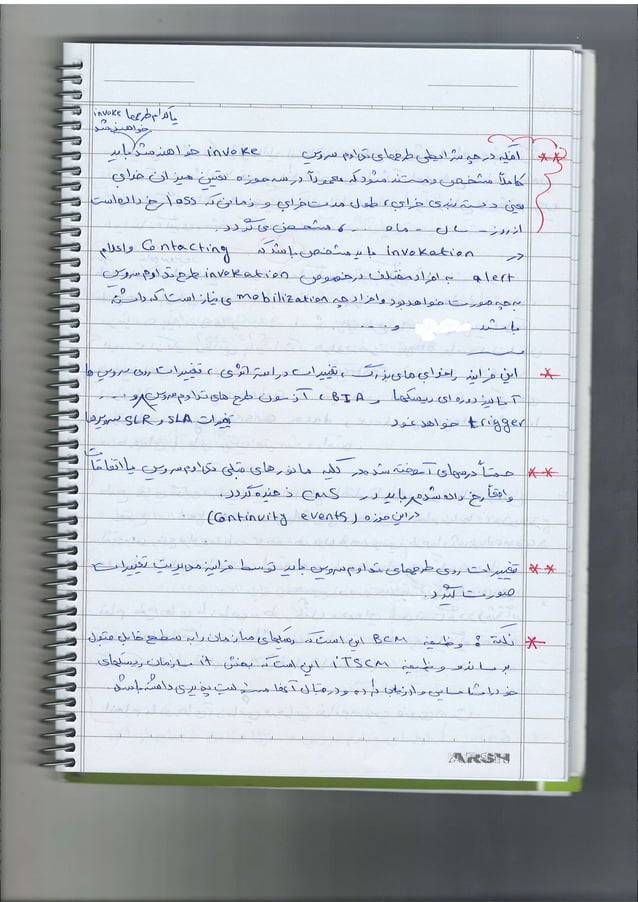 یا کدام طرحها invoke
خواهند شد
آنکه در چه شرایطی طرحهای تداوم سرویس invoke خواهند شد باید
کاملاً مشخص و مستند شود که معمولاً در سه حوزه یعنی میزان خرابی
یعنی دسته بندی خرابی، طول مدت خرابی و زمانی که loss رخ داده است
از روز - سال - ماه ... مشخص می گردد.
در invokation باید مشخص باشد که Contacting و اعلام
alert به افراد مختلف در خصوص invokation طرح تداوم سرویس
به چه صورت خواهد بود و افراد چه mobilization ی نیاز است که داشته
باشند و ....
این فرایند را اجرای های بزرگ، تغییرات در استراتژی، تغییرات روی سرویس ها
آنالیز دوره ای ریسکها و BIA، آزمون طرح های تداوم سرویس و ...
تغییرات SLA و SLR سرویسها
trigger خواهد نمود
حتماً درسهای آموخته شده در کلیه مانورهای قبلی تداوم سرویس یا اتفاقات
واقعاً رخ داده شده باید در CMS ذخیره گردد.
در این حوزه (Continuity events)
تغییرات روی طرحهای تداوم سرویس باید توسط فرایند مدیریت تغییرات
صورت گیرد.
نکته: وظیفه BCM این است که ریسکهای سازمان را به سطح قابل قبول
برساند و وظیفه ITSCM این است که بخش it سازمان ریسکهای
خود را شناسایی و ارزیابی کرده و در قبال آنها مسئولیت پذیری داشته باشد.
ARSH